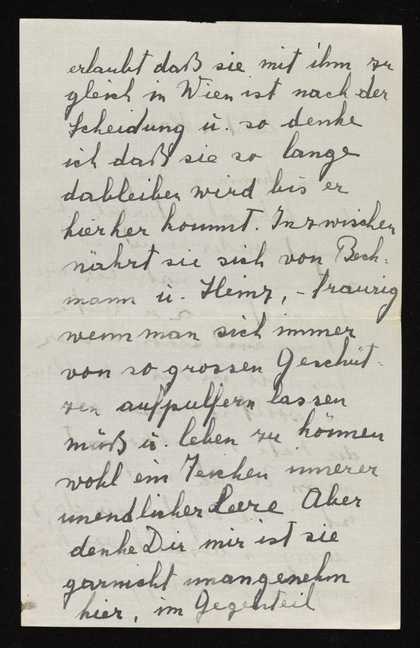 erlaubt daß sie mit ihm zu
gleich in Wien ist nach der
Scheidung u. so denke
ich daß sie so lange
dableiben wird bis er
hierher kommt. Inzwischen
nährt sie sich von Beck-
mann u. Heinz, – traurig
wenn man sich immer
von so grossen Geschüt-
zen aufpulfern lassen
muß u. leben zu können
wohl ein Zeichen innerer
unendlicher Leere Aber
denke Dir mir ist sie
garnicht unangenehm
hier, im Gegenteil